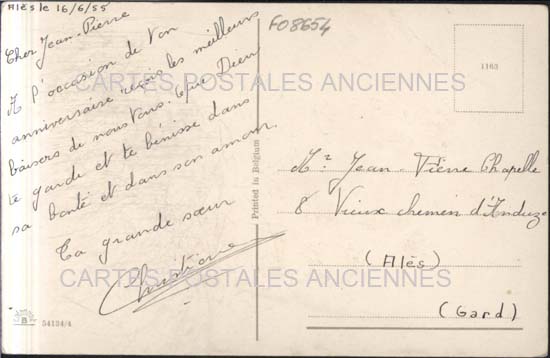 Alès le 16/6/55
Cher Jean-Pierre
A l'occasion de ton
anniversaire reçois les meilleurs
baisers de nous tous. Que Dieu
te garde et te bénisse dans
sa bonté et dans son amour.
Ta grande sœur
Christiane
FO8654
1163
Printed in Belgium
Mr Jean-Pierre Chapelle
8 Vieux chemin d'Anduze
(Alès)
(Gard)
B 54134/4
CARTES POSTALES ANCIENNES
CARTES POSTALES ANCIENNES